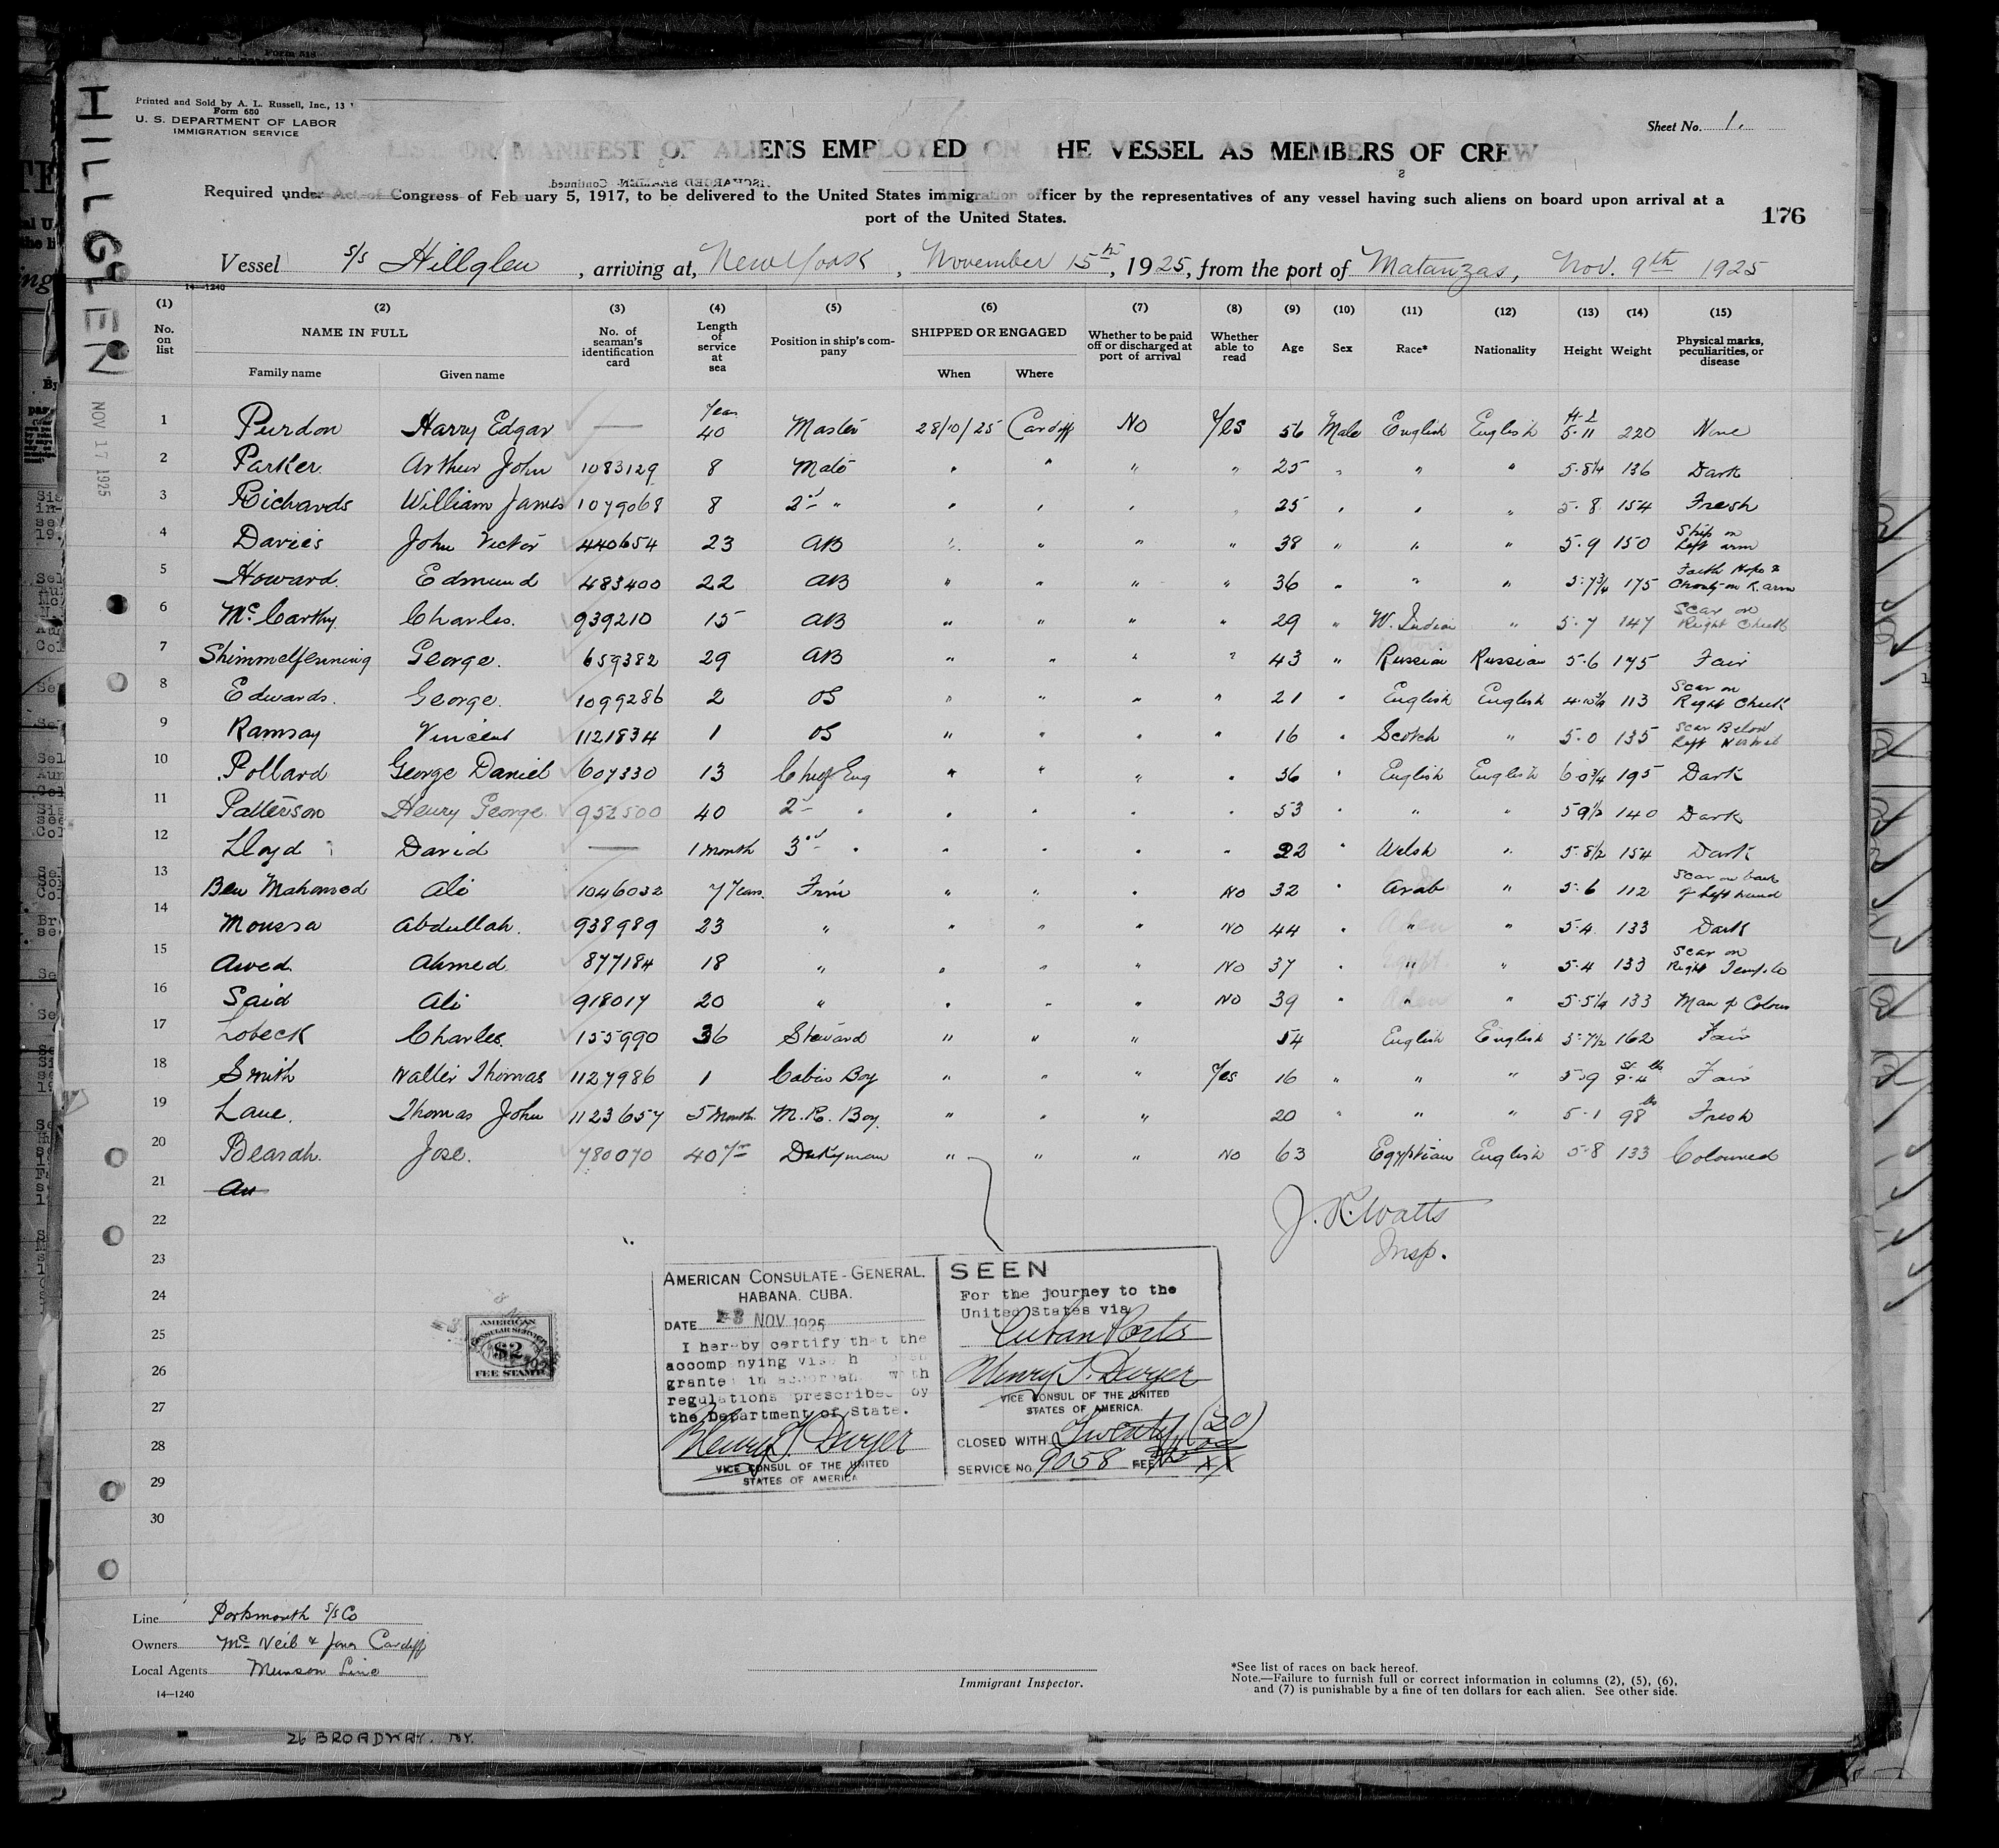 HILLGLEN
NOV 17 1925
Form 518
Printed and Sold by A. L. Russell, Inc., 13
Form 680
U. S. DEPARTMENT OF LABOR
IMMIGRATION SERVICE
Sheet No. 1.
LIST OR MANIFEST OF ALIENS EMPLOYED ON THE VESSEL AS MEMBERS OF CREW
Required under Act of Congress of February 5, 1917, to be delivered to the United States immigration officer by the representatives of any vessel having such aliens on board upon arrival at a
port of the United States.
176
Vessel S/S Hillglen, arriving at, New York, November 15th, 1925, from the port of Matanzas, Nov. 9th 1925
14—1240
(1) (2) (3) (4) (5) (6) (7) (8) (9) (10) (11) (12) (13) (14) (15)
No. on list NAME IN FULL No. of seaman's identification card Length of service at sea Position in ship's company SHIPPED OR ENGAGED Whether to be paid off or discharged at port of arrival Whether able to read Age Sex Race* Nationality Height Weight Physical marks, peculiarities, or disease
Family name Given name When Where
1 Purdon Harry Edgar — Years 40 Master 28/10/25 Cardiff No Yes 56 Male English English 5·11 220 None
2 Parker Arthur John 1083129 8 Mate " " " " 25 " " " 5·8¼ 136 Dark
3 Richards William James 1079068 8 2nd " " " " " 25 " " " 5·8 154 Fresh
4 Davies John Victor 440654 23 AB " " " " 38 " " " 5·9 150 Ship on Left arm
5 Howard Edmund 483400 22 AB " " " " 36 " " " 5·7¾ 175 Faith Hope & Charity on R. arm
6 McCarthy Charles. 939210 15 AB " " " " 29 " W. Indian " 5·7 147 Scar on Right Cheek
7 Shimmelfenning George. 659382 29 AB " " " " 43 " Russian Russian 5·6 175 Fair
8 Edwards. George. 1099286 2 OS " " " " 21 " English English 4·10¾ 113 Scar on Right Cheek
9 Ramsay Vincent 1121834 1 OS " " " " 16 " Scotch " 5·0 135 Scar Below Left Nostril
10 Pollard George Daniel 607330 13 Chief Eng " " " " 36 " English English 6·0¾ 195 Dark
11 Patterson Henry George 952500 40 2nd " " " " " 53 " " " 5 9½ 140 Dark
12 Lloyd David — 1 Month 3rd " " " " " 22 " Welsh " 5·8½ 154 Dark
13 Ben Mahomed Ali 1046032 7 Years. Frm " " " No 32 " Arab " 5·6 112 Scar on back of Left hand
14 Moussa Abdullah. 938989 23 " " " " No 44 " " " 5·4 133 Dark
15 Awed. Ahmed 877184 18 " " " " No 37 " " " 5·4 133 Scar on Right Temple
16 Said Ali 918017 20 " " " " No 39 " " " 5·5¼ 133 Man of Colour
17 Lobeck Charles. 155990 36 Steward " " " 54 English English 5·7½ 162 Fair
18 Smith Walter Thomas 1127986 1 Cabin Boy " " " Yes 16 " " " 5·9 St lbs 9·4 Fair
19 Lane. Thomas John 1123657 5 Month. M.R. Boy. " " " 20 " " " 5·1 98 lbs Fresh
20 Bearah. Jose. 780070 40 Yrs Dnkyman " " " No 63 Egyptian English 5·8 133 Coloured
21 An
22
23
24
25
26
27
28
29
30
J. R. Watts
Insp.
AMERICAN CONSULATE-GENERAL.
HABANA, CUBA.
DATE 8 NOV 1925
I hereby certify that the
accompanying visa h been
granted in accordance with
regulations prescribed by
the Department of State.
Henry T. Dwyer
VICE CONSUL OF THE UNITED
STATES OF AMERICA
SEEN
For the journey to the
United States via
Cuban Ports
Henry T. Dwyer
VICE CONSUL OF THE UNITED
STATES OF AMERICA.
CLOSED WITH Twenty (20)
SERVICE NO. 9058 FEE
AMERICAN
CONSULAR SERVICE
$2
FEE STAMP
Line Portsmouth S/S Co
Owners McNeil & Jones Cardiff
Local Agents Munson Line
14—1240
Immigrant Inspector.
*See list of races on back hereof.
Note.—Failure to furnish full or correct information in columns (2), (5), (6),
and (7) is punishable by a fine of ten dollars for each alien. See other side.
26 BROADWAY. NY.